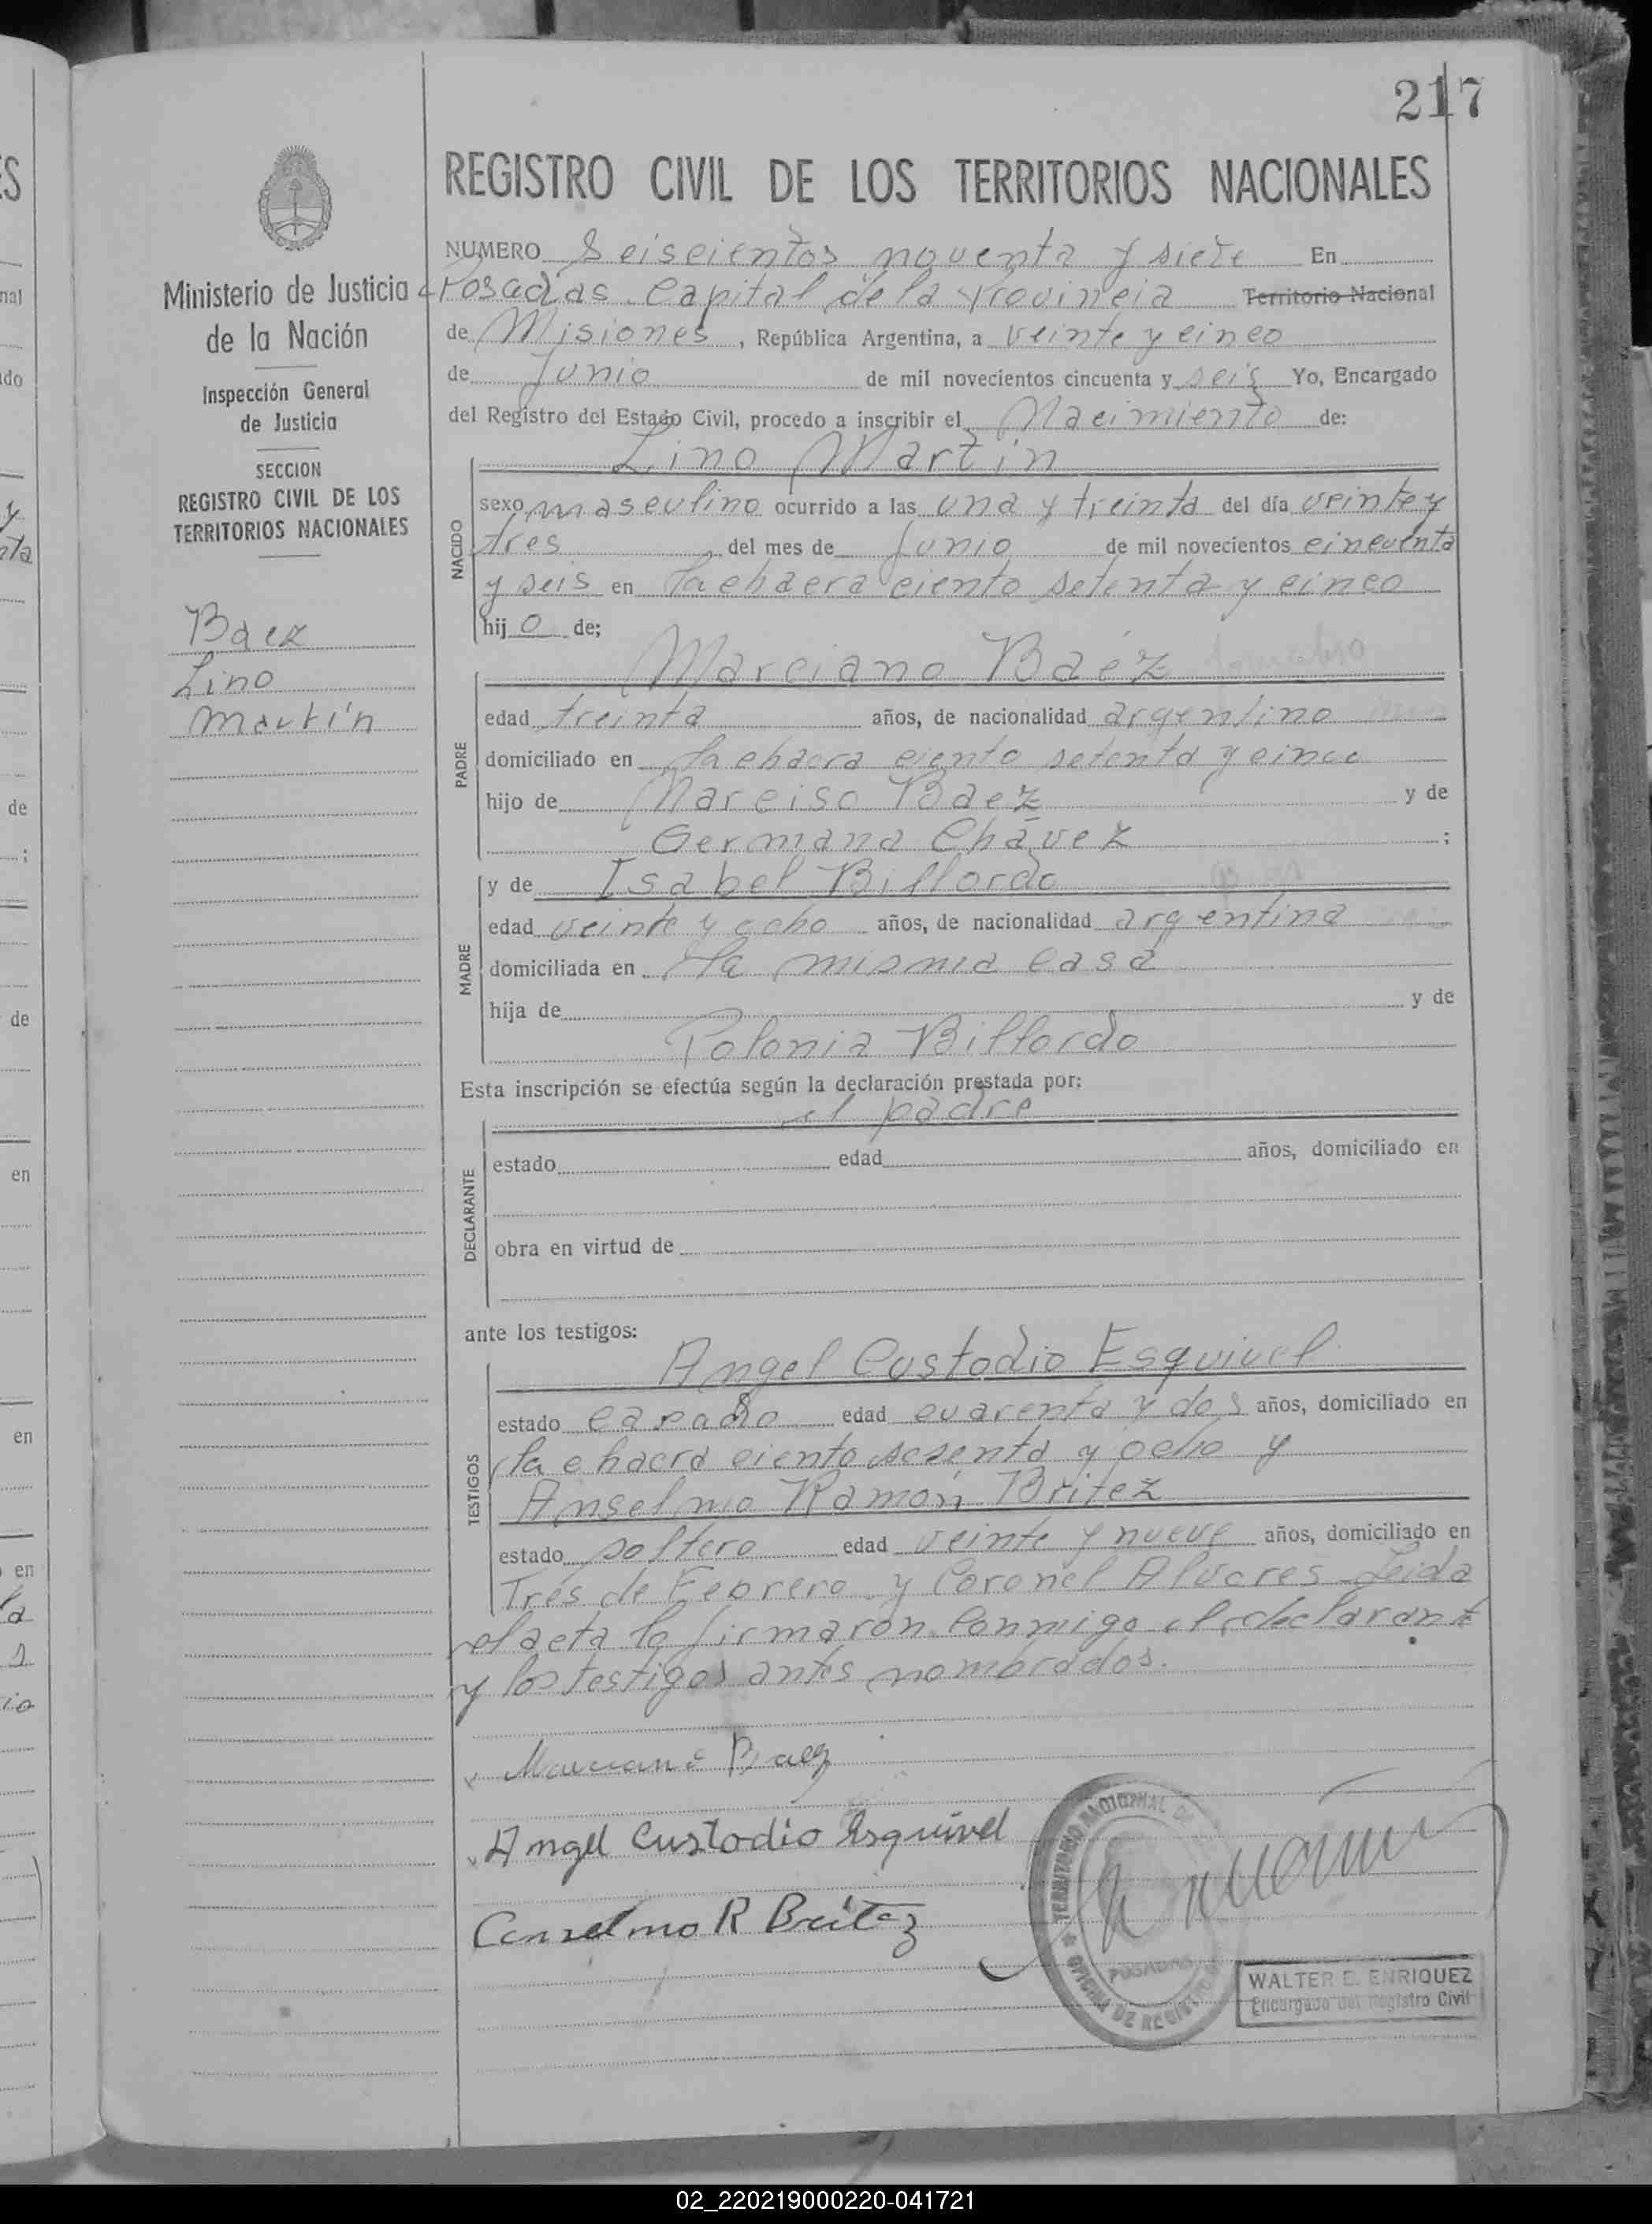 217
REGISTRO CIVIL DE LOS TERRITORIOS NACIONALES
Ministerio de Justicia
de la Nación
Inspección General
de Justicia
SECCION
REGISTRO CIVIL DE LOS
TERRITORIOS NACIONALES
Baez
Lino
Martín
NUMERO Seiscientos noventa y siete En
Posadas Capital de la Provincia Territorio Nacional
de Misiones, República Argentina, a veinte y cinco
de Junio de mil novecientos cincuenta y seis Yo, Encargado
del Registro del Estado Civil, procedo a inscribir el Nacimiento de:
NACIDO
Lino Martín
sexo masculino ocurrido a las una y treinta del día veinte y
tres del mes de Junio de mil novecientos cincuenta
y seis en la chacra ciento setenta y cinco
hij o de;
PADRE
Marciano Baéz
edad treinta años, de nacionalidad argentino
domiciliado en la chacra ciento setenta y cinco
hijo de Narciso Baez y de
Germana Chávez ;
MADRE
y de Isabel Billordo
edad veinte y ocho años, de nacionalidad argentina
domiciliada en la misma casa
hija de y de
Polonia Billordo
Esta inscripción se efectúa según la declaración prestada por:
el padre
DECLARANTE
estado edad años, domiciliado en
obra en virtud de
ante los testigos:
TESTIGOS
Angel Custodio Esquivel
estado casado edad cuarenta y dos años, domiciliado en
la chacra ciento sesenta y ocho y
Anselmo Ramón Britez
estado soltero edad veinte y nueve años, domiciliado en
Tres de Febrero y Coronel Alvares Leida
el acta la firmaron Conmigo el declarante
y los testigos antes nombrados.
Marciano Baez
Angel Custodio Esquivel
Anselmo R Britez
TERRITORIO NACIONAL DE
POSADAS
OFICINA DE REGISTRO
WALTER E. ENRIQUEZ
Encargado del Registro Civil
02_220219000220-041721